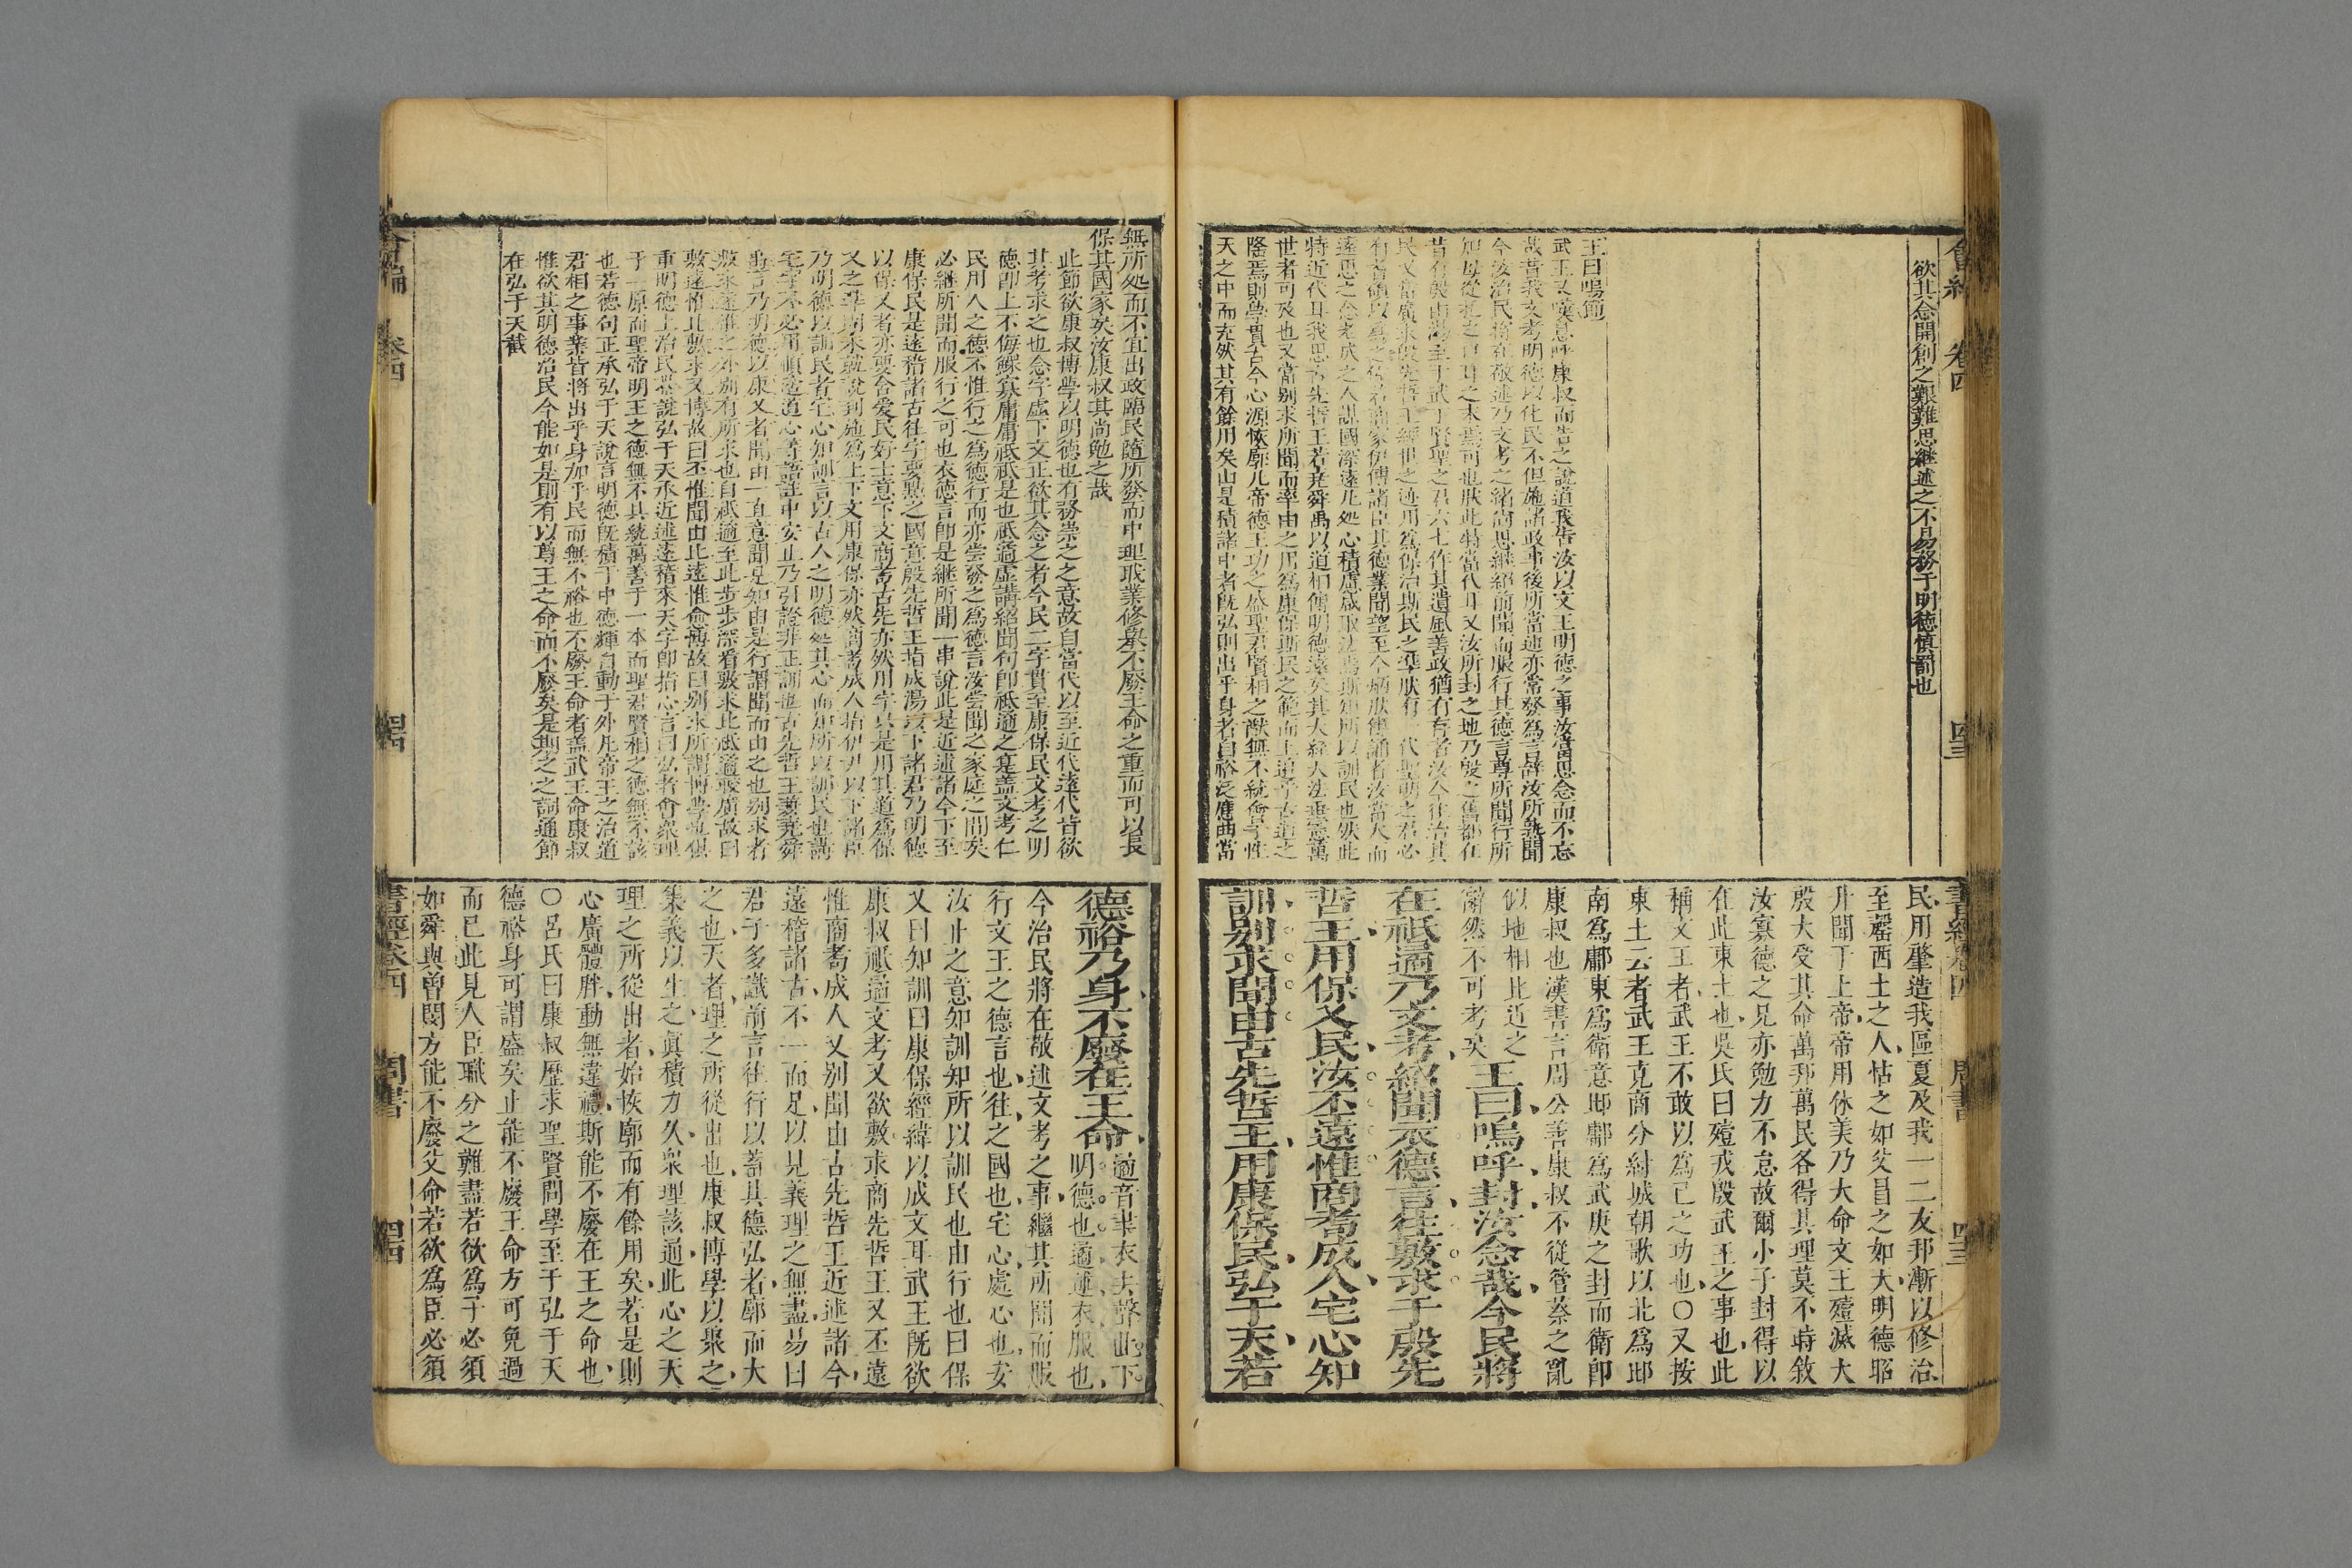 欲其念開創之艱難思繼述之不易務于明德慎罰也
王曰嗚節
武王又嘆息呼康叔而告之說道我告汝以文王明德之事汝當思念而不忘
哉昔我文考明德以化民不但施諸政事後所當述亦常發爲言辭汝所熟聞
今汝治民將在敬述乃文考之緒尚思繼紹前聞而服行其德言尊所聞行所
知毋從
昔有殷由湯至于武丁賢聖之君六七作其遺風善政猶有存者汝今往治其
民又當廣求殷先哲王經世之迹用爲保治斯民之準
遠思之念老成之人謀國深遠凡處心積慮咸取法焉斯知所以訓民也然此
特近代耳我思古先哲王若堯舜禹以道相傳明德遠矣其大經大法垂憲萬
世者可及也又當别求所聞而率由之用爲康保斯民之範而上追乎古道之
隆焉則學貫古今心源恢廓凡帝德王功之盛聖君賢相之猷無不統會乎性
天之中而充然其有餘用矣由是積諸中者既弘則出乎身者自裕泛應曲當
民用肇造我區夏及我一二友邦漸以修治
至罄西土之人怙之如父冒之如天明德昭
升聞于上帝帝用休美乃大命文王殪滅大
殷大受其命萬邦萬民各得其理莫不時敘
汝寡德之兄亦勉力不怠故爾小子封得以
在此東土也吳氏曰殪戎殷武王之事也此
稱文王者武王不敢以爲己之功也○又按
東土云者武王克商分紂城朝歌以北爲邶
南爲鄘東爲衛意邶鄘爲武庚之封而衛即
康叔也漢書言周公善康叔不從管蔡之亂
似地相比近之
辭然不可考矣王曰嗚呼封汝念哉今民將
在祗遹乃文考紹聞衣德言往敷求于殷先
哲王用保乂民汝丕遠惟商耇成人宅心知
訓别求聞由古先哲王用康保民弘于天若
無所処而不宜出政臨民隨所發而中理職業修舉不廢王命之重而可以長
保其國家矣汝康叔其尚勉之哉
此節欲康叔博學以明德也有務崇之之意故自當代以至近代遠代皆欲
其考求之也念字虛下文正欲其念之者今民二字貫至康保民文考之明
德即上不侮鰥寡庸庸祗祗是也祗遹虛講紹聞句即祗遹之寔蓋文考仁
民用人之德不惟行之爲德行而亦嘗發之爲德言汝嘗聞之家庭之間矣
必繼所聞而服行之可也衣德言即是繼所聞一串說此是近述諸今下至
康保民是遠稽諸古往字要㸃之國意殷先哲王指成湯以下諸君乃明德
以保乂者亦要含愛民好士意下文商耇古先亦然用字只是用其道爲保
乂之準
乃明德以訓民者宅心知訓言以古人之明德処其心而知所以訓民也講
宅字不必用順適道心等語註中安止乃引證非正訓也古先哲王兼堯舜
禹言乃明德以康乂者聞由一直意聞是知由是行謂聞而由之也别求者
敷求遠惟之外别有所求也自祗遹至此步步深看敷求比祗遹較廣故曰
敷遠惟比敷求又博故曰丕惟聞由比遠惟愈博故曰别求所謂博學也俱
重明德上治民
予一原而聖帝明王之德無不具統萬善于一本而聖君賢相之德無不該
也若德句正承弘于天說言明德既積于中德輝自動于外凡帝王之治道
君相之事業皆將出乎身加乎民而無不裕也不廢王命者蓋武王命康叔
惟欲其明德治民今能如是則有以尊王之命而不廢矣是期之之詞通節
在弘于天截
德裕乃身不廢在王命遹音聿衣去聲此下
明德也遹述衣服也
今治民將在敬述文考之事繼其所聞而服
行文王之德言也往之國也宅心處心也安
汝止之意知訓知所以訓民也由行也曰保
乂曰知訓曰康保經緯以成文耳武王既欲
康叔祗遹文考又欲敷求商先哲王又丕遠
惟商耇成人又别聞由古先哲王近述諸今
遠稽諸古不一而足以見義理之無盡易曰
君子多識前言往行以蓄其德弘者廓而大
之也天者理之所從出也康叔博學以聚之
集義以生之眞積力久衆理該通此心之天
理之所從出者始恢廓而有餘用矣若是則
心廣體胖動無違禮斯能不廢在王之命也
○呂氏曰康叔歷求聖賢問學至于弘于天
德裕身可謂盛矣止能不廢王命方可免過
而已此見人臣職分之難盡若欲爲子必須
如舜與曾閔方能不廢父命若欲爲臣必須
會編 卷四
書經卷四 周書